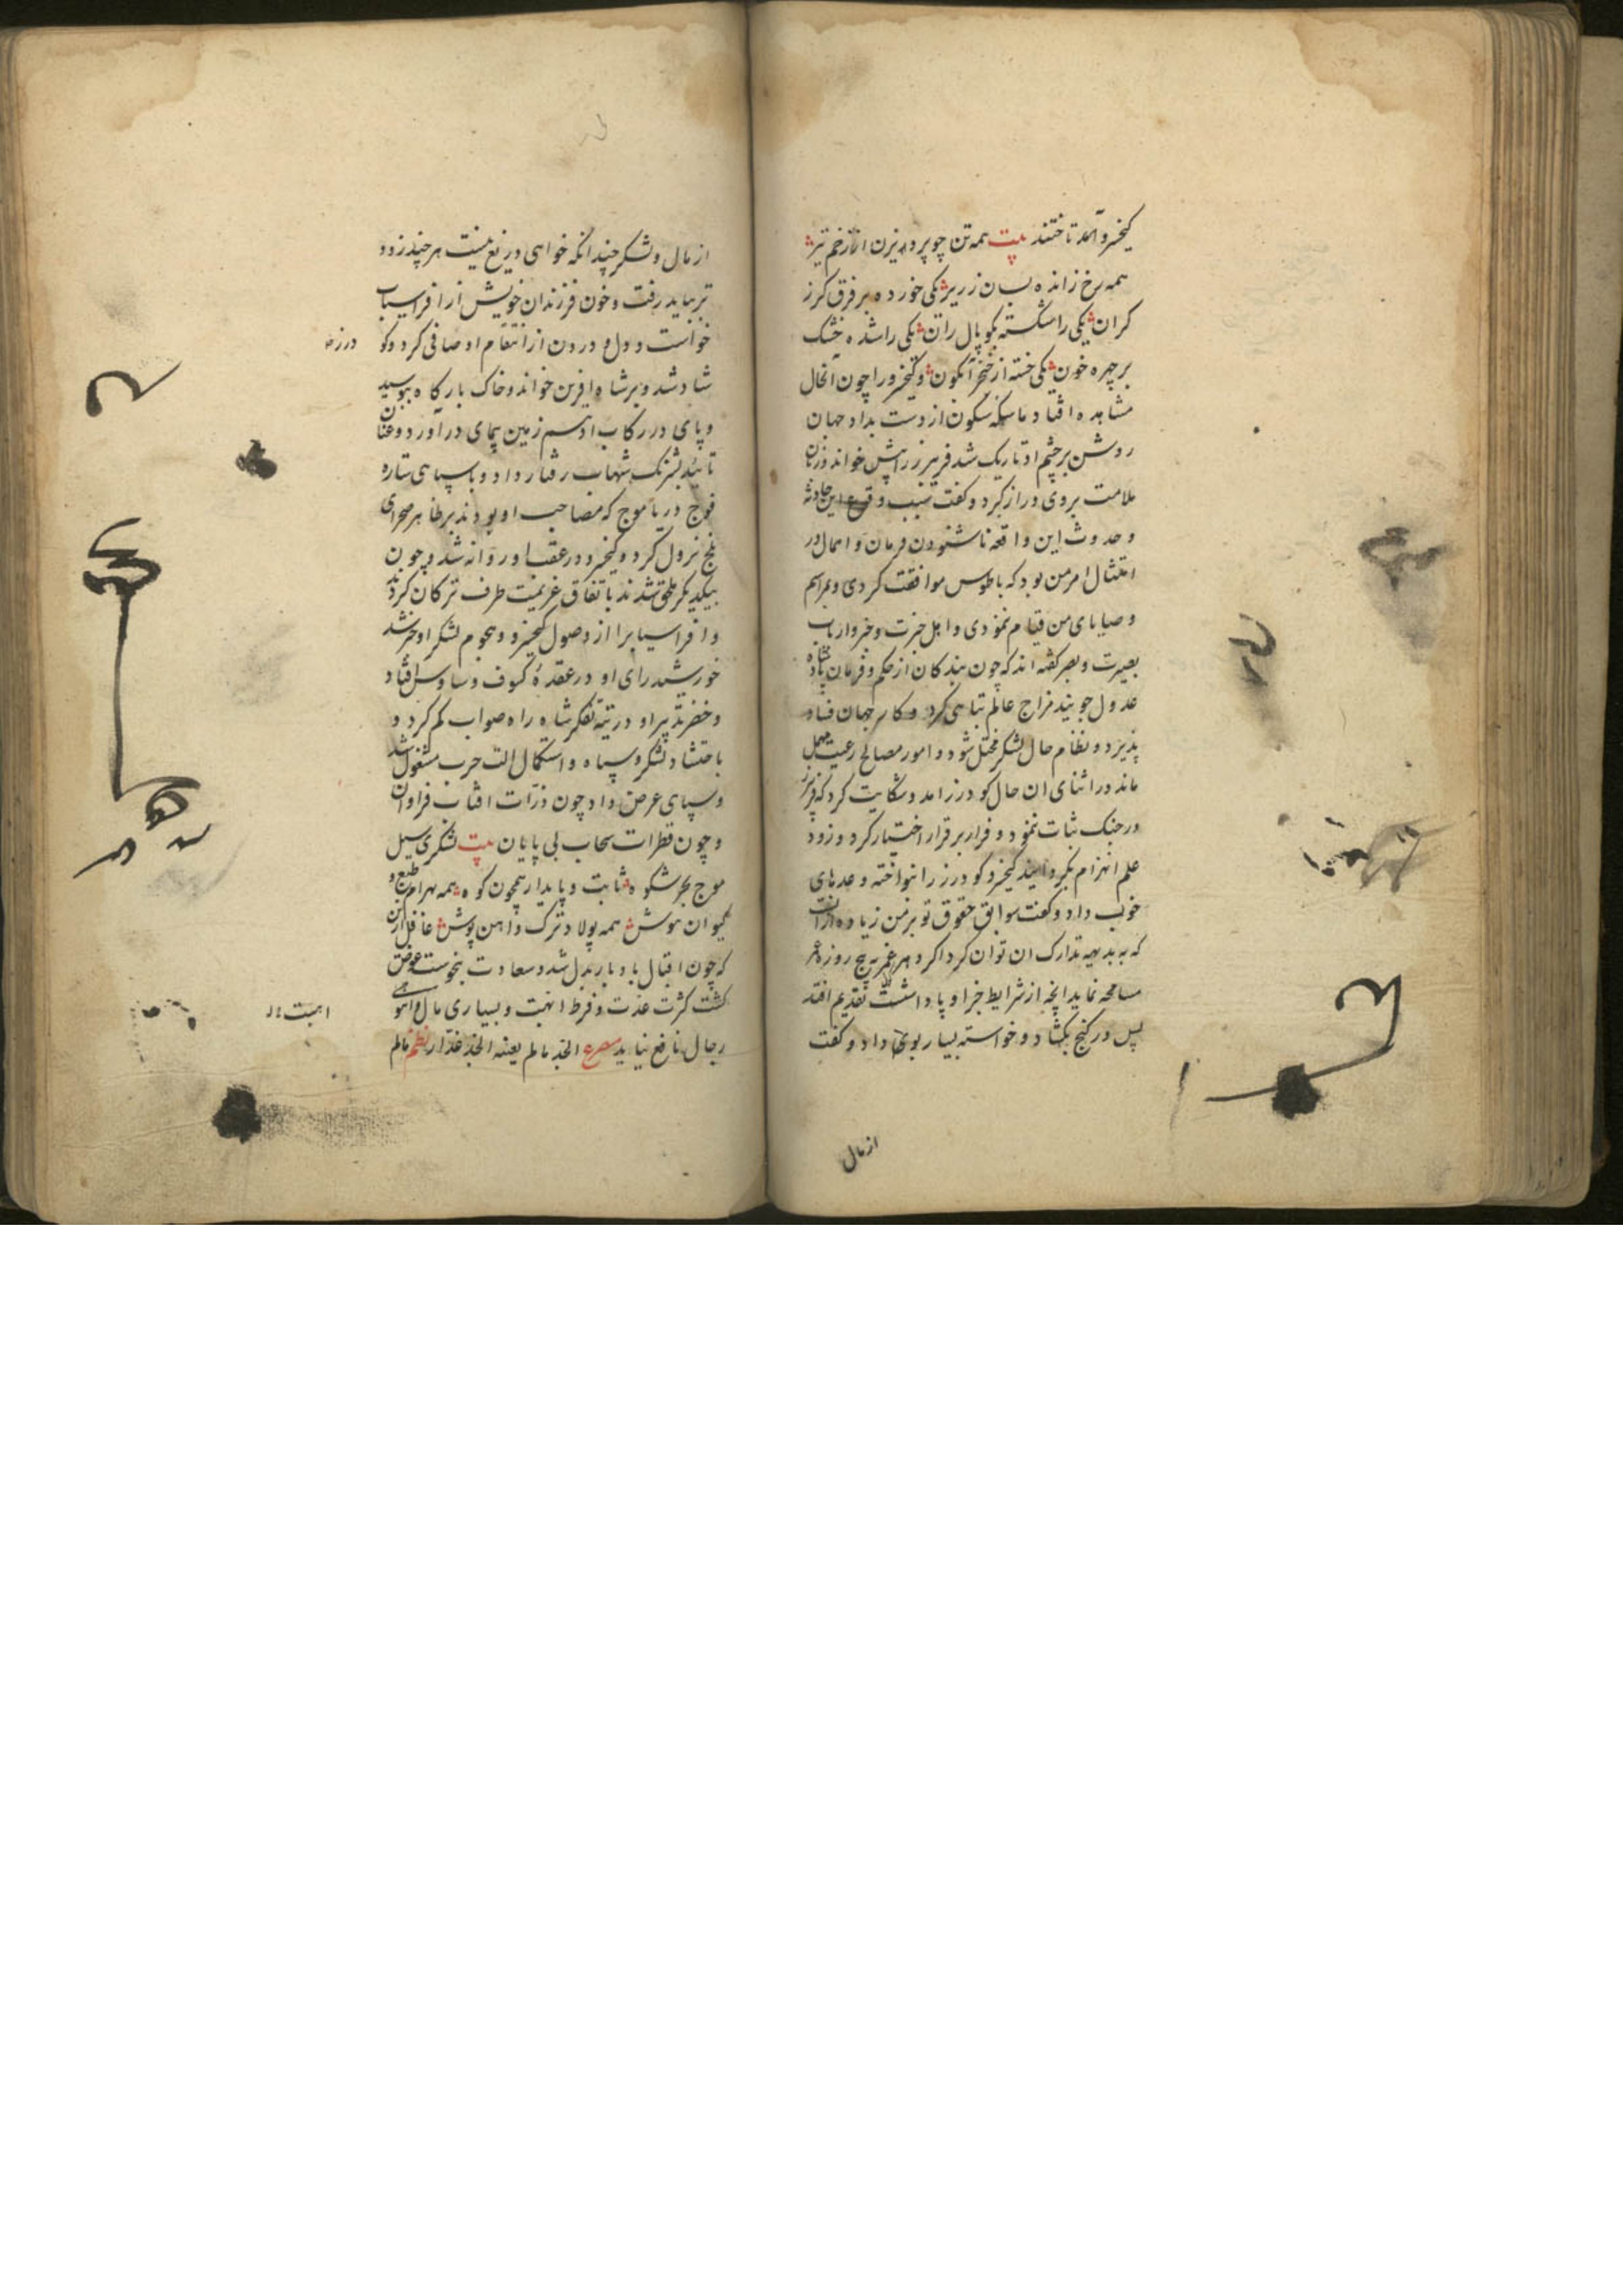 کیخسرو آمد تاختند بیت همه تن چو پرویزن از زخم تیر
همه رخ ز اندُه بسان زریر یکی خورده بر فرق کرز
کران یکی را شکسته بکوپال ران یکی را شده خشک
بر چهره خون یکی خسته از خنجر آبکون و کیخسرو را چون آنحال
مشاهده افتاد ماسکه سکون از دست بداد جهان
روشن بر چشم او تاریک شد فریبرز را پیش خواند و زبان
ملامت بروی دراز کرد و کفت سبب وقوع این حادثه
و حدوث این واقعه ناشنودن فرمان و اهمال در
امتثال امر من بود که با طوس موافقت کردی و بمراسم
وصایای من قیام ننمودی و اهل خبرت و خبر و ارباب
بصیرت و بصر کفته اند که چون بندکان از حکم و فرمان پادشاه
عدول جویند مزاج عالم تباهی کیرد و کار جهان فساد
پذیرد و نظام حال لشکر مختل شود و امور مصالح رعیت مهمل
ماند در اثنای ان حال کودرز امد و شکایت کرد که فریبرز
در جنک ثبات ننمود و فرار بر قرار اختیار کرد و زود
علم انهزام بکردانید کیخسرو کودرز را بنواخته وعدهای
خوب داد و کفت سوابق حقوق تو بر من زیاده از انست
که به بدیهه تدارک ان توان کرد اکر دهر غمر به پنج روزه عمر
مسامحه نماید انچه از شرایط جزا و پاداشست تقدیم افتد
پس در کنج بکشاد و خواسته بسیار بوی داد و کفت
از مال
از مال و لشکر چندانکه خواهی دریغ نیست هر چند زود
تر بباید رفت و خون فرزندان خویش از افراسیاب
خواست و دل و درون از انتقام او صافی کرد و کو
درز
شاد شد و بر شاه افرین خواند و خاک بارکاه ببوسید
و پای در رکاب ادهم زمین پیمای در آورد و عنان
تائید بشبرنک شهاب رفتار داد و با سپاهی ستاره
فوج دریا موج که مصاحب او بودند بر ظاهر صحرای
بلخ نزول کرد و کیخسرو در عقب او روانه شد و چون
بیکدیکر ملحق شدند باتفاق عزیمت طرف ترکان کردند
و افراسیاب را از وصول کیخسرو و هجوم لشکر او خبر شد
خورشید رای او در عقدهٔ کسوف وساوس افتاد
و خضر تدبیر او در تیه تفکر شاه راه صواب کم کرد و
باحتشاد لشکر و سپاه و استکمال الت حرب مشغول شد
و سپاهی عرض داد چون ذرات افتاب فراوان
و چون قطرات سحاب بی پایان بیت لشکری سیل
موج بحر شکوه ثابت و پایدار همچون کوه همه بهرام طبع و
کیوان هوش همه پولاد ترک و اهن پوش غافل از ان
که چون اقبال بادبار بدل شد و سعادت بنحوست عوض
کشت کثرت عدت و فرط اهبت و بسیاری مال و انبوهی
اهبت
رجال نافع نیاید مصرع الجد ما لم یعنه الجد غدار نظم ما لم